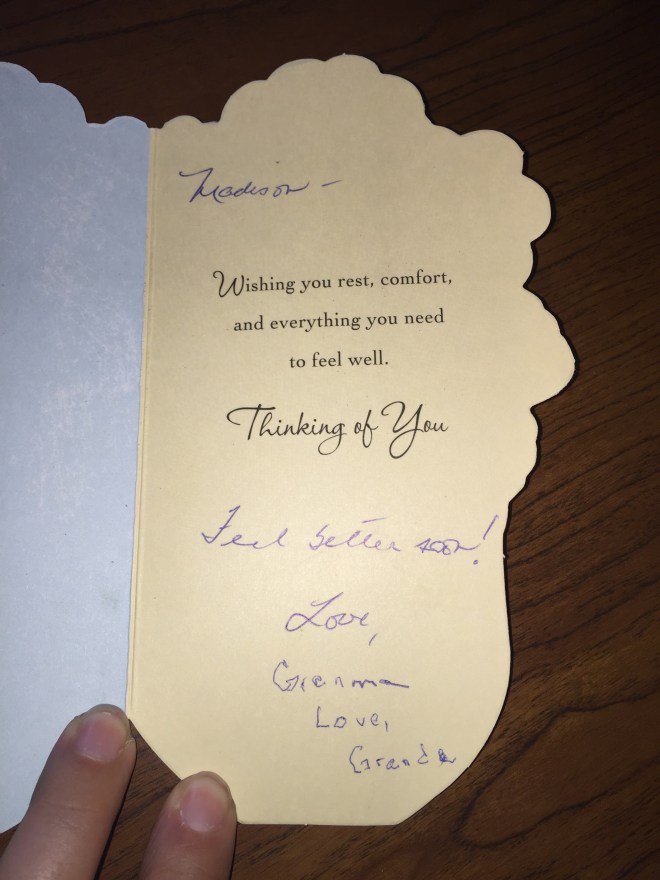 Madison -
Wishing you rest, comfort,
and everything you need
to feel well.
Thinking of You
Feel better soon!
Love,
Granma
Love,